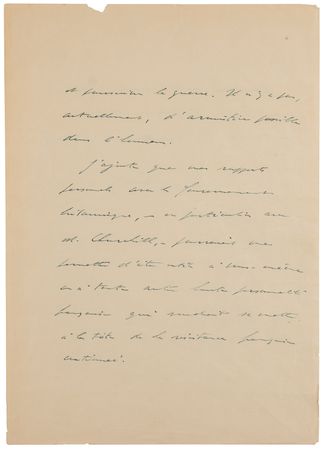 et poursuivre la guerre. Il n'y a pas,
actuellement, d'armistice possible
dans l'honneur.
J'ajoute que mes rapports
personnels avec le Gouvernement
britannique, – en particulier avec
M. Churchill, – pourraient me
permettre d'être utile à vous-même
ou à toute autre haute personnalité
française qui voudrait se mettre
à la tête de la résistance française
continuée.